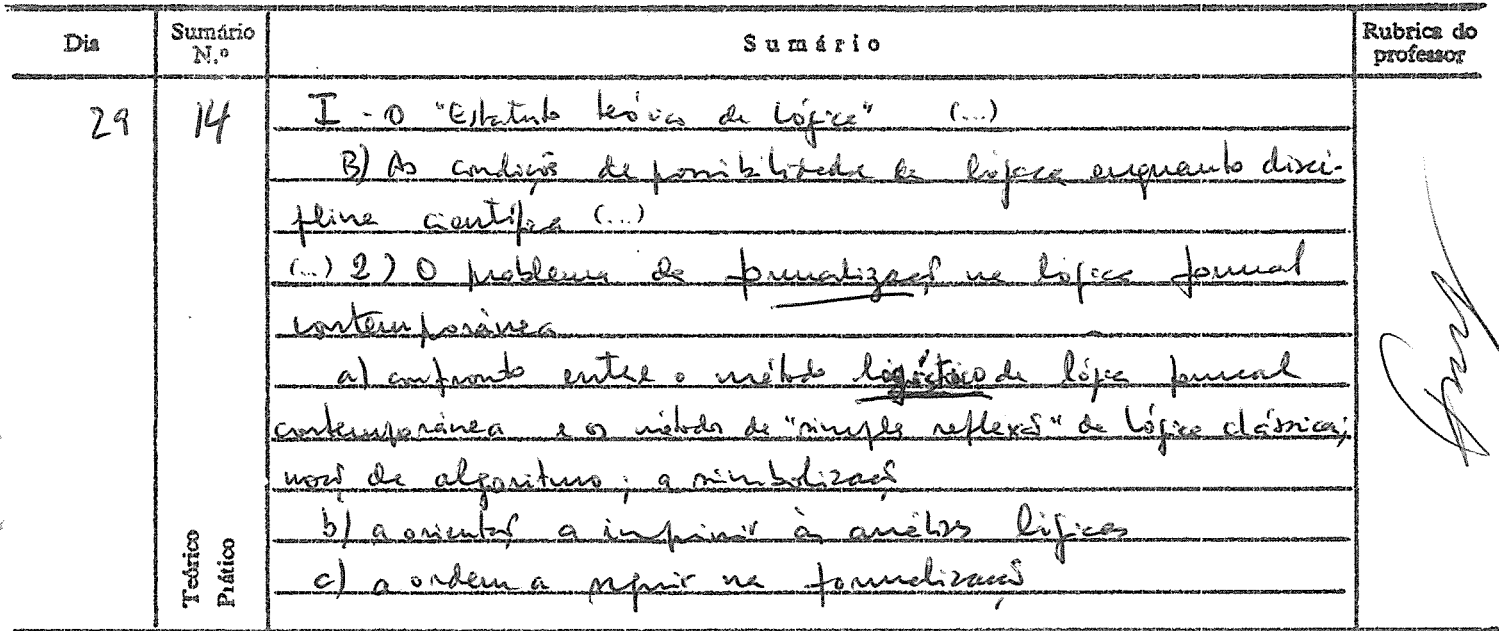 Dia Sumário N.º Sumário Rubrica do professor
29 14 I - O "Estatuto teórico da Lógica" (...)
B) As condições de possibilidade da lógica enquanto disci-
plina científica (...)
(...) 2) O problema da formalização na lógica formal
contemporânea
a) confronto entre o método logístico da lógica formal
contemporânea e os métodos de "simples reflexão" da lógica clássica;
noção de algoritmo; a simbolização
b) a orientação a imprimir às análises lógicas
c) a ordem a seguir na formalização
Teórico
Prático